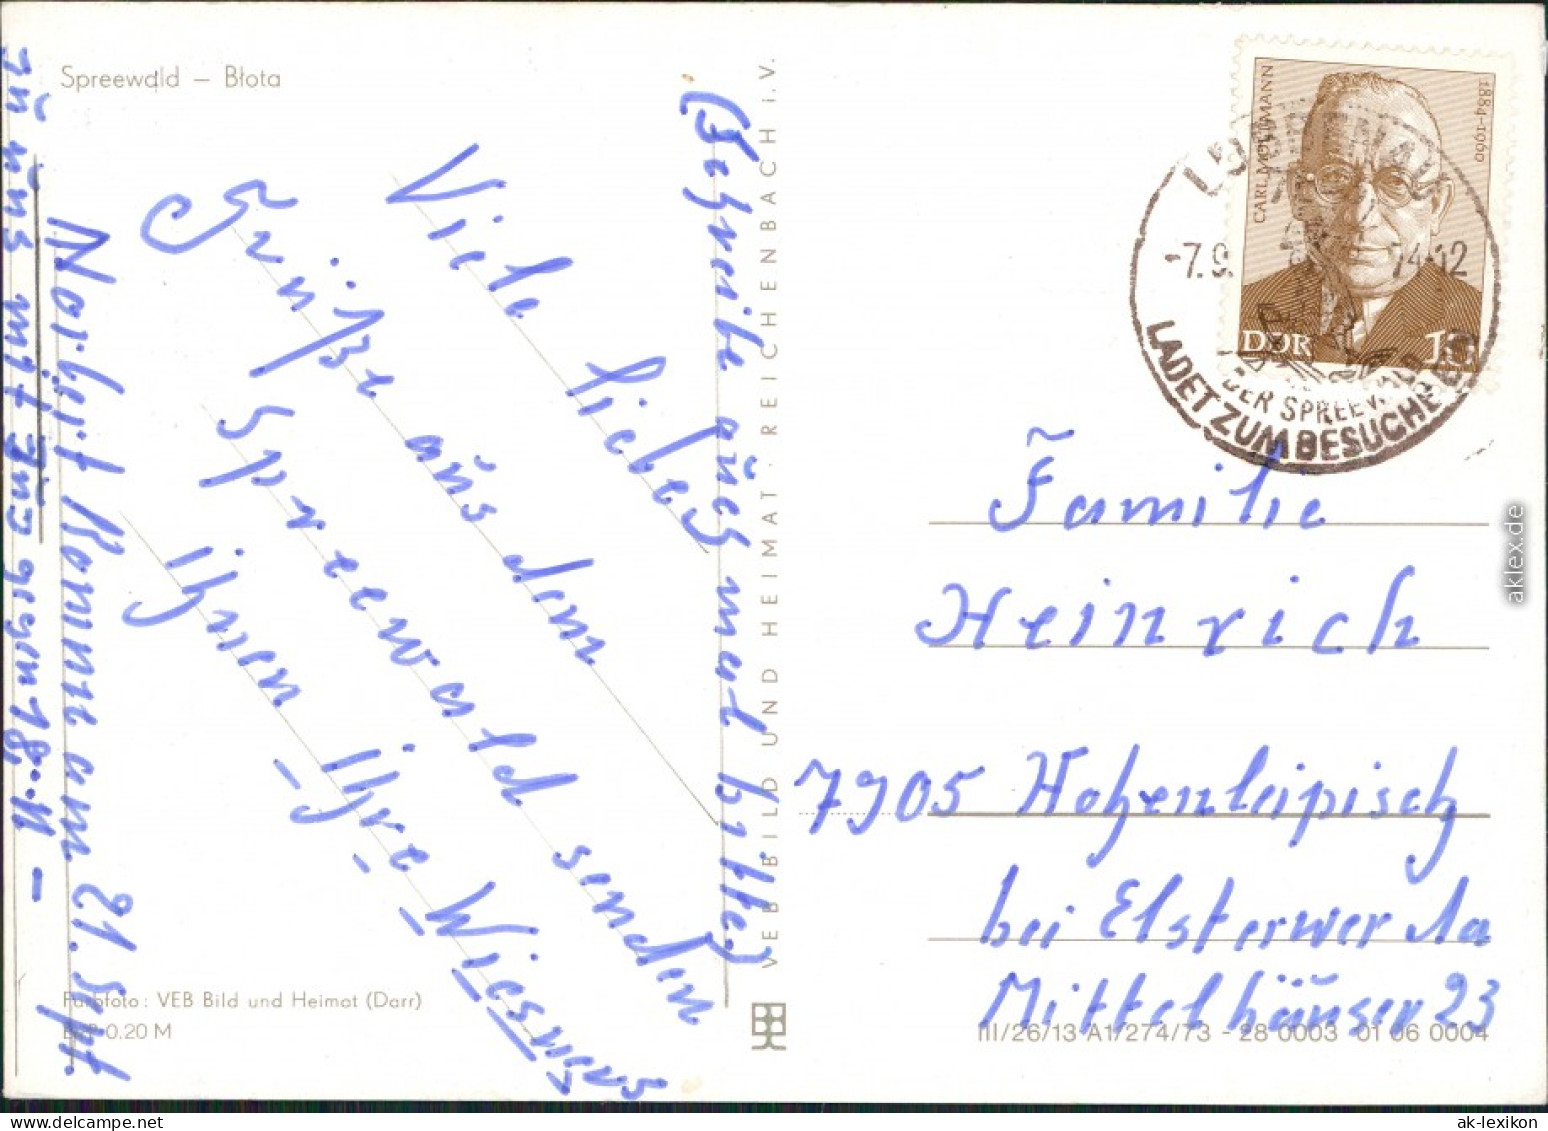 Spreewald – Błota
Viele liebe
Grüße aus dem
Spreewald senden
Ihnen Ihre Wiesners
(Schreibe auch mal bitte)
Norbert komme am 21. Sept.
zu uns mit Zug gegen 18.11 –
Farbfoto: VEB Bild und Heimat (Darr)
0.20 M
VEB BILD UND HEIMAT · REICHENBACH i. V.
CARL MOLTMANN
1884–1960
DDR 10
LÜBBENAU
-7.9. 74-12
DER SPREEWALD
LADET ZUM BESUCHE EIN
Familie
Heinrich
7905 Hohenleipisch
bei Elsterwerda
Mittelhäuser 23
III/26/13 A1/274/73 - 28 0003 01 06 0004
aklex.de
www.delcampe.net
ak-lexikon